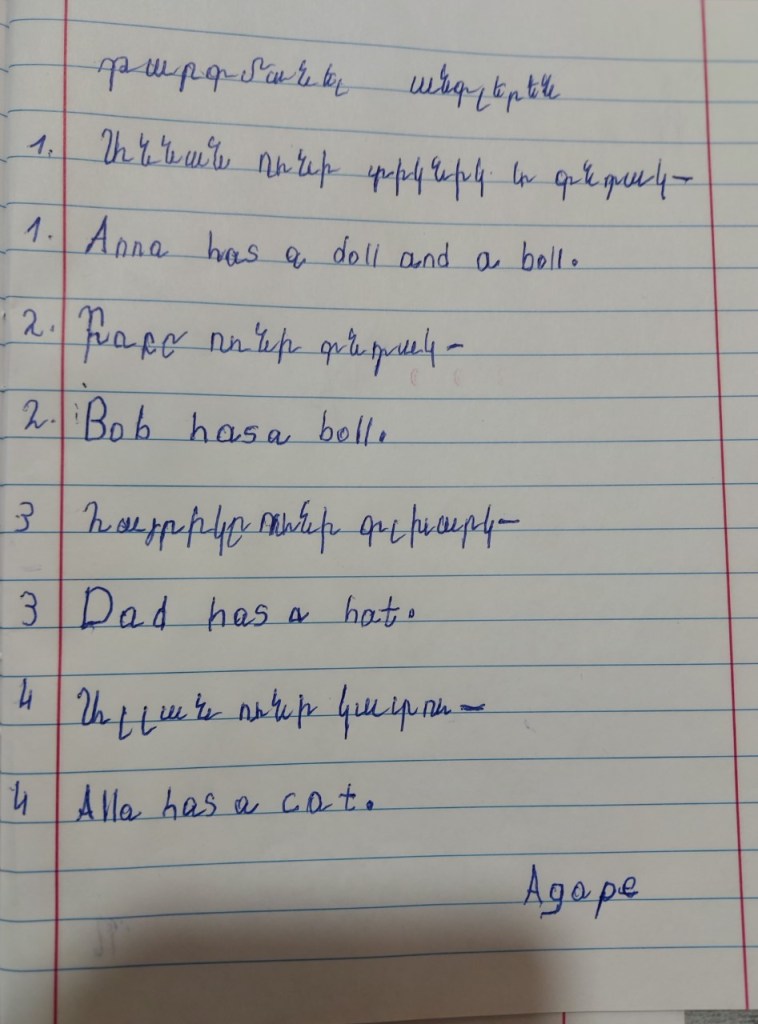 թարգմանել անգլերեն
1. Աննան ունի տիկնիկ և գնդակ–
1. Anna has a doll and a boll.
2. Բաբը ունի գնդակ–
2. Bob has a boll.
3 Հայրիկը ունի գլխարկ–
3 Dad has a hat.
4 Ալլան ունի կատու–
4 Alla has a cat.
Agape